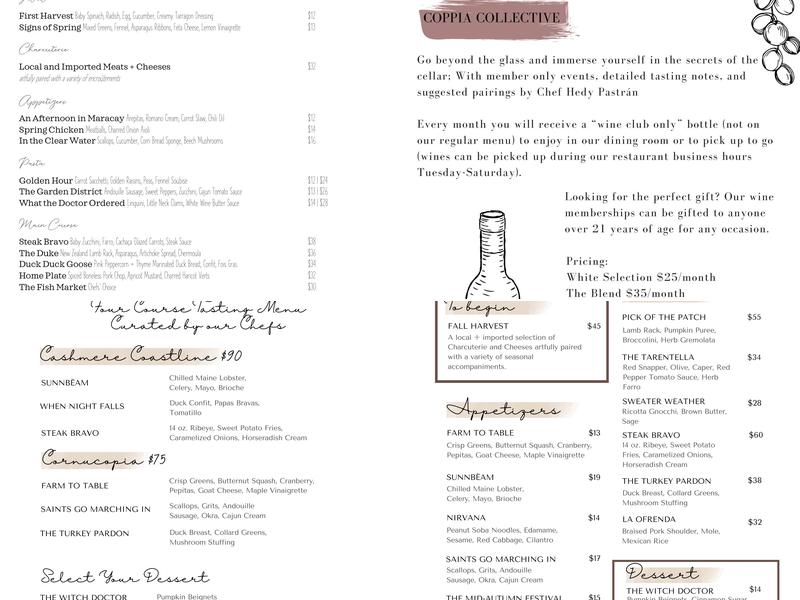 First Harvest Baby Spinach, Radish, Egg, Cucumber, Creamy Tarragon Dressing $12
Signs of Spring Mixed Greens, Fennel, Asparagus Ribbons, Feta Cheese, Lemon Vinaigrette $13
Charcuterie
Local and Imported Meats + Cheeses $32
artfully paired with a variety of encroûtements
Appetizers
An Afternoon in Maracay Arepitas, Romano Cream, Carrot Slaw, Chili Oil $12
Spring Chicken Meatballs, Charred Onion Aioli $14
In the Clear Water Scallops, Cucumber, Corn Bread Sponge, Beech Mushrooms $16
Pasta
Golden Hour Carrot Sacchetti, Golden Raisins, Peas, Fennel Soubise $12 | $24
The Garden District Andouille Sausage, Sweet Peppers, Zucchini, Cajun Tomato Sauce $13 | $26
What the Doctor Ordered Linguini, Little Neck Clams, White Wine Butter Sauce $14 | $28
Main Course
Steak Bravo Baby Zucchini, Farro, Cachaça Glazed Carrots, Steak Sauce $38
The Duke New Zealand Lamb Rack, Asparagus, Artichoke Spread, Chermoula $36
Duck Duck Goose Pink Peppercorn + Thyme Marinated Duck Breast, Confit, Fois Gras $34
Home Plate Spiced Boneless Pork Chop, Apricot Mustard, Charred Haricot Verts $32
The Fish Market Chefs' Choice $30
COPPIA COLLECTIVE
Go beyond the glass and immerse yourself in the secrets of the
cellar; With member only events, detailed tasting notes, and
suggested pairings by Chef Hedy Pastrán
Every month you will receive a “wine club only” bottle (not on
our regular menu) to enjoy in our dining room or to pick up to go
(wines can be picked up during our restaurant business hours
Tuesday-Saturday).
Looking for the perfect gift? Our wine
memberships can be gifted to anyone
over 21 years of age for any occasion.
Pricing:
White Selection $25/month
The Blend $35/month
Four Course Tasting Menu
Curated by our Chefs
Cashmere Coastline $90
SUNNBËAM Chilled Maine Lobster,
Celery, Mayo, Brioche
WHEN NIGHT FALLS Duck Confit, Papas Bravas,
Tomatillo
STEAK BRAVO 14 oz. Ribeye, Sweet Potato Fries,
Caramelized Onions, Horseradish Cream
Cornucopia $75
FARM TO TABLE Crisp Greens, Butternut Squash, Cranberry,
Pepitas, Goat Cheese, Maple Vinaigrette
SAINTS GO MARCHING IN Scallops, Grits, Andouille
Sausage, Okra, Cajun Cream
THE TURKEY PARDON Duck Breast, Collard Greens,
Mushroom Stuffing
Select Your Dessert
THE WITCH DOCTOR Pumpkin Beignets
To begin
FALL HARVEST $45
A local + imported selection of
Charcuterie and Cheeses artfully paired
with a variety of seasonal
accompaniments.
Appetizers
FARM TO TABLE $13
Crisp Greens, Butternut Squash, Cranberry,
Pepitas, Goat Cheese, Maple Vinaigrette
SUNNBËAM $19
Chilled Maine Lobster,
Celery, Mayo, Brioche
NIRVANA $14
Peanut Soba Noodles, Edamame,
Sesame, Red Cabbage, Cilantro
SAINTS GO MARCHING IN $17
Scallops, Grits, Andouille
Sausage, Okra, Cajun Cream
THE MID-AUTUMN FESTIVAL $15
PICK OF THE PATCH $55
Lamb Rack, Pumpkin Puree,
Broccolini, Herb Gremolata
THE TARENTELLA $34
Red Snapper, Olive, Caper, Red
Pepper Tomato Sauce, Herb
Farro
SWEATER WEATHER $28
Ricotta Gnocchi, Brown Butter,
Sage
STEAK BRAVO $60
14 oz. Ribeye, Sweet Potato
Fries, Caramelized Onions,
Horseradish Cream
THE TURKEY PARDON $38
Duck Breast, Collard Greens,
Mushroom Stuffing
LA OFRENDA $32
Braised Pork Shoulder, Mole,
Mexican Rice
Dessert
THE WITCH DOCTOR $14
Pumpkin Beignets, Cinnamon Sugar